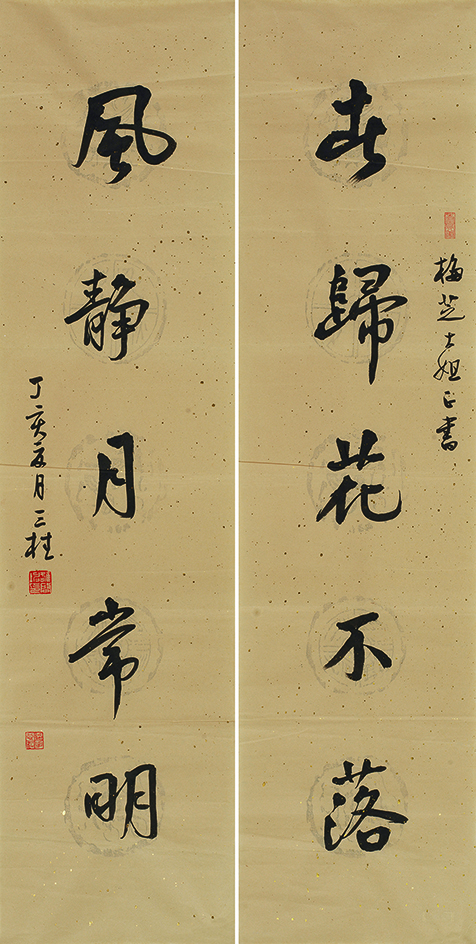 春歸花不落
梅芝大姐正書
風靜月常明
丁亥 月 三